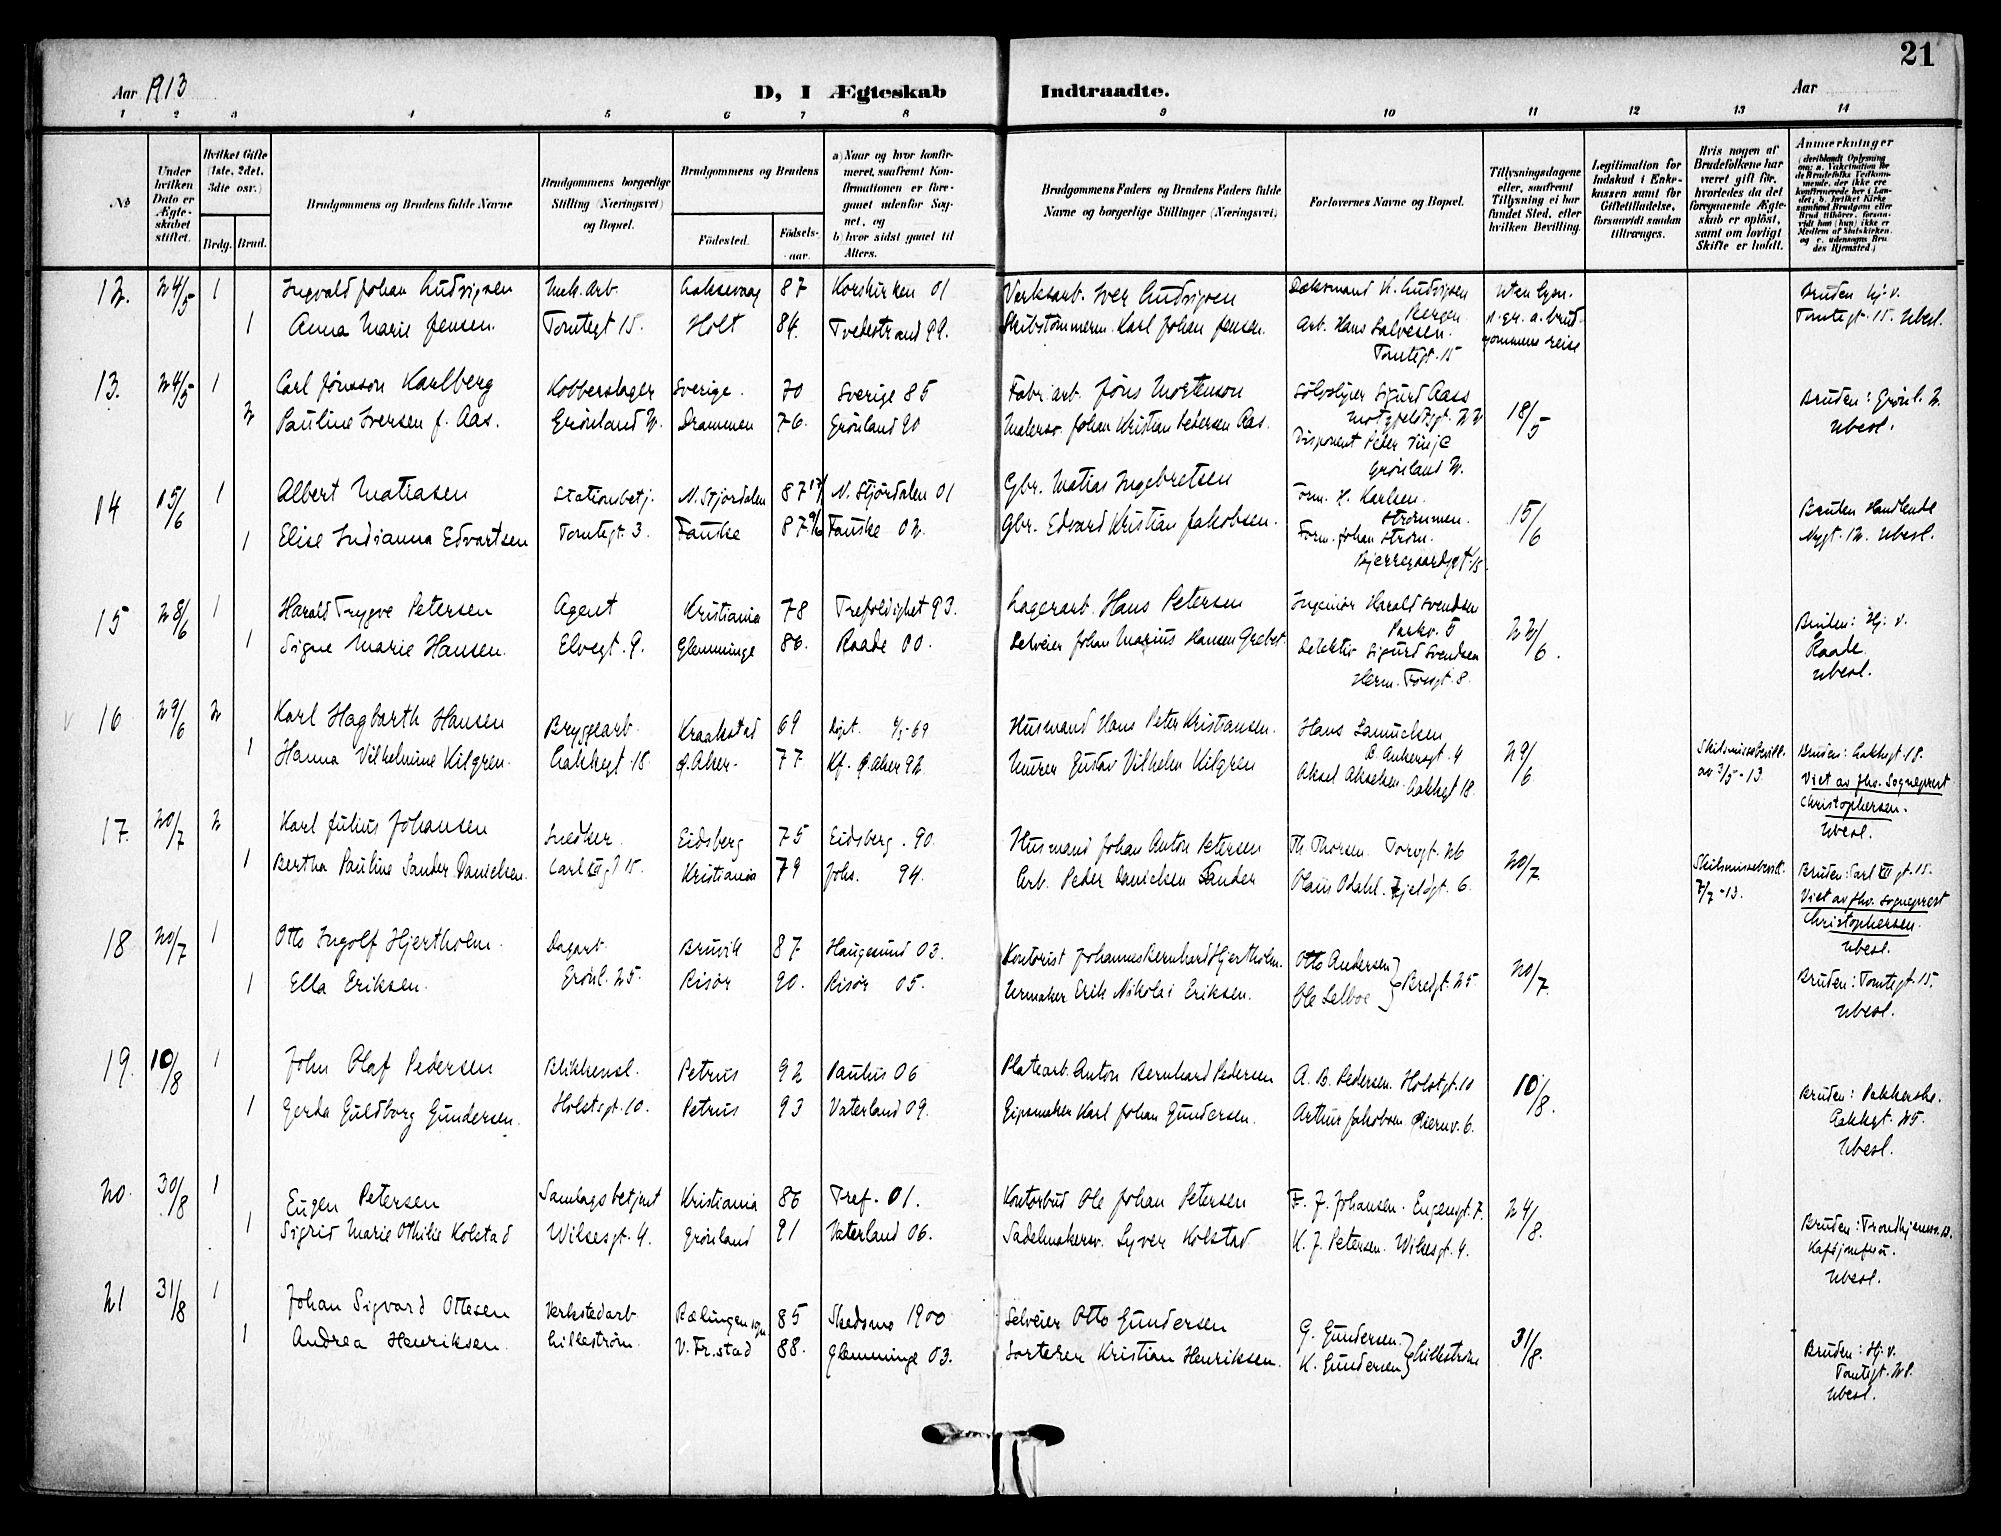 21
Aar 1913
D, I Ægteskab Indtraadte.
Aar
1 2 3 4 5 6 7 8 9 10 11 12 13 14
No
Under hvilken Dato er Ægteskabet stiftet.
Hvilket Gifte (1ste, 2det, 3die osv.)
Brdg. Brud.
Brudgommens og Brudens fulde Navne
Brudgommens borgerlige Stilling (Næringsvei) og Bopæl.
Brudgommens og Brudens
Fødested. Fødselsaar.
a) Naar og hvor konfirmeret, saafremt Konfirmationen er foregaaet udenfor Sognet, og
b) hvor sidst gaaet til Alters.
Brudgommens Faders og Brudens Faders fulde Navne og borgerlige Stillinger (Næringsvei)
Forlovernes Navne og Bopæl.
Tillysningsdagene eller, saafremt Tillysning ei har fundet Sted, efter hvilken Bevilling.
Legitimation for Indskud i Enkekassen samt for Giftetilladelse, forsaavidt saadan tiltrænges.
Hvis nogen af Brudefolkene har været gift før, hvorledes da det foregaaende Ægteskab er opløst, samt om lovligt Skifte er holdt.
Anmerkninger
12. 24/5 1 Ingvald Johan Ludvigsen Mek. arb. Laksevaag 87 Korskirken 01 Verksarb. Iver Ludvigsen Dæksmand K. Ludvigsen Bergen uten lysn. Bruden hj. v.
1 Anna Marie Jensen. Tomtegt 15. Holt 84. Tvedestrand 99. Skibstømmerm. Karl Johan Jensen. Arb. Hans Salvesen. Tomtegt. 15 p. gr. a. brudgommens reise Tomtegt. 15. Ubesl.
13. 24/5 1 Carl Jønsson Karlberg Kobberslager Sverige. 70 Sverige 85 Fabr. arb. Jöns Mortenson Sølvsliper Sigurd Aass Motzfeldtsgt. 22 18/5 Bruden: Grønl. 2.
2 Pauline Iversen f. Aas. Grønland 2. Drammen 76. Grønland 90 Malersv. Johan Kristian Pedersen Aas. Disponent Peter Vinje Grønland 2. Ubesl.
14 15/6 1 Albert Matiasen Stationsbetj. N. Stjørdalen 87 N. Stjørdalen 01 Gbr. Matias Ingebretsen Form. H. Karlsen. Strømmen. 15/6 Bruden Handlende
1 Elise Indianna Edvartsen Tomtegt. 3. Fauske 87 Fauske 02. Gbr. Edvard Kristian Jakobsen. Form. Johan Strøm. Bjerregaardsgt. Nygt. 12. Ubesl.
15 28/6 1 Harald Trygve Petersen Agent Kristiania 78 Trefoldighet 93. Lagerarb. Hans Petersen Ingeniør Harald Svendsen Parkv. 5 22/6. Bruden: Hj. v.
1 Signe Marie Hansen. Elvegt. 9. Glemminge 86. Raade 00. Selveier Johan Marius Hansen Grebst. Detektiv Sigurd Svendsen Herm. Fossgt. 8. Raade. Ubesl.
16 29/6 2 Karl Hagbarth Hansen Bryggearb. Kraakstad 69 Døpt. 69 Husmand Hans Peter Kristiansen. Hans Samuelsen C. Ankersgt. 4 29/6 Skilsmissebevill. av 3/5-13
1 Hanna Vilhelmine Kilgren. Lakkegt. 18. Ø. Aker. 77 Kf. Ø. Aker 92. Murer Gustav Vilhelm Kilgren Aksel Akselsen. Lakkegt 18. Bruden: Lakkegt 18. Viet av fhv. Sogneprest Christophersen. Ubesl.
17. 20/7 2 Karl Julius Johansen Snedker. Eidsberg 75 Eidsberg. 90. Husmand Johan Anton Petersen Th Thorsen. Torvgt. 26 20/7. Skilsmissebevill. 7/7-13.
1 Bertha Pauline Sander Danielsen. Carl XII gt 15. Kristiania 79 Johs. 94. Arb. Peder Danielsen Sander Olaus Odahl. Fjeldgt. 6. Bruden: Carl XII gt. 15. Viet av fhv. Sogneprest Christophersen. Ubesl.
18 20/7 1 Otto Ingolf Hjertholm. Dagarb. Bruvik 87 Haugesund 03. Kontorist Johannes Bernhard Hjertholm. Otto Andersen 20/7. Bruden: Tomtegt. 15.
1 Ella Eriksen. Grønl. 25. Risør 90. Risør 05. Urmaker Erik Nikolai Eriksen. Ole Selboe } Bredgt. 25. Ubesl.
19. 10/8 1 John Olaf Pedersen Blikkensl. Petrus 92 Paulus 06 Platearb. Anton Bernhard Pedersen A. B. Pedersen. Holstgt. 10 10/8. Bruden: Pakkerske.
1 Gerda Guldborg Gundersen. Holstsgt. 10. Petrus 93 Vaterland 09. Gipsmaker Karl Johan Gundersen. Arthur Jakobsen. 6. Lakkegt. 25. Ubesl.
20. 30/8 1 Eugen Petersen Samlagsbetjent Kristiania 86 Tref. 01. Kontorbud Ole Johan Petersen F. J. Johansen. Eugensgt. 7. 24/8. Bruden: Trondhjemsv. 13.
1 Sigrid Marie Othilie Kolstad Wilsesgt. 4. Grønland 91 Vaterland 06. Sadelmakersv. Syver Kolstad K. J. Petersen. Wilsesgt. 4. Kaféjomfru. Ubesl.
21 31/8 1 Johan Sigvard Ottesen Verkstedarb. Rælingen 85 Skedsmo 1900 Selveier Otto Gundersen G. Gundersen 31/8. Bruden: Hj. v.
1 Andrea Henriksen. Lillestrøm. V. Fr.stad 88. Glemminge 03. Sorterer Kristian Henriksen. K. Gundersen } Lillestrøm Tomtegt. 21. Ubesl.